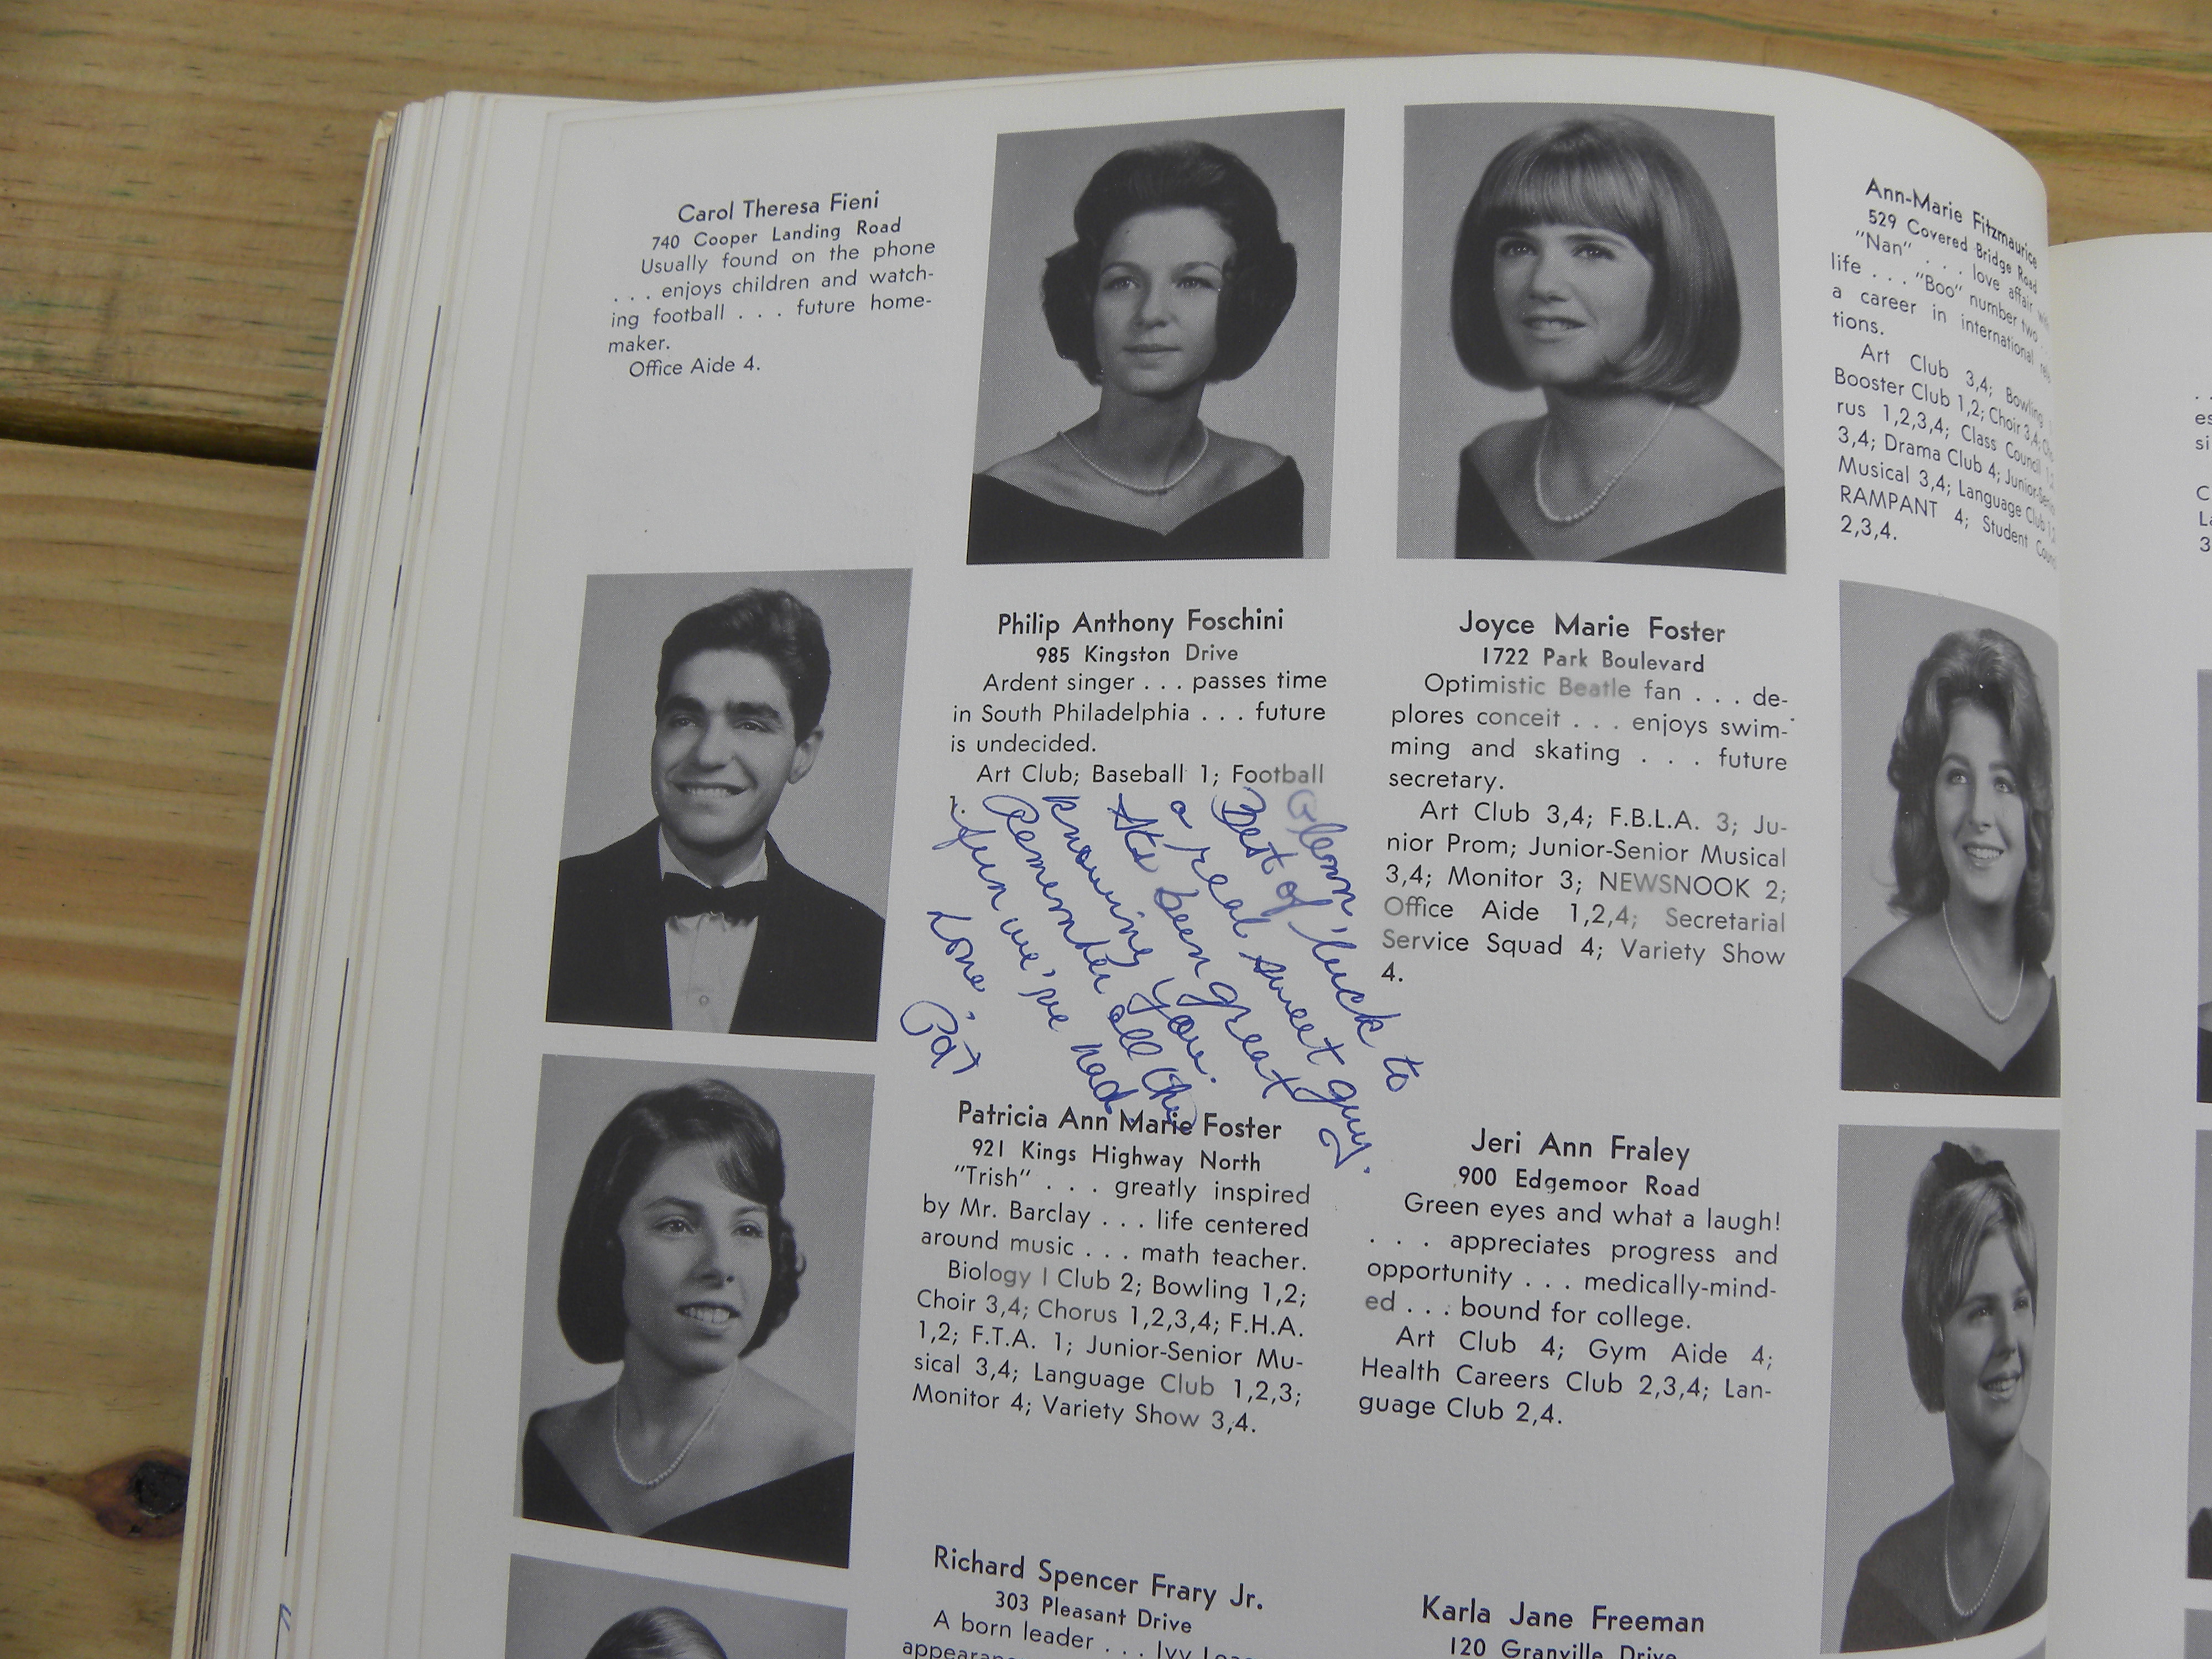 Carol Theresa Fieni
740 Cooper Landing Road
Usually found on the phone
. . . enjoys children and watch-
ing football . . . future home-
maker.
Office Aide 4.
Ann-Marie Fitzmaurice
529 Covered Bridge Road
"Nan" . . . love affair
life . . . "Boo" number two
a career in international
tions.
Art Club 3,4; Bowling
Booster Club 1,2; Choir 3,4;
rus 1,2,3,4; Class Council
3,4; Drama Club 4; Junior-
Musical 3,4; Language Club
RAMPANT 4; Student
2,3,4.
Philip Anthony Foschini
985 Kingston Drive
Ardent singer . . . passes time
in South Philadelphia . . . future
is undecided.
Art Club; Baseball 1; Football
1.
Joyce Marie Foster
1722 Park Boulevard
Optimistic Beatle fan . . . de-
plores conceit . . . enjoys swim-
ming and skating . . . future
secretary.
Art Club 3,4; F.B.L.A. 3; Ju-
nior Prom; Junior-Senior Musical
3,4; Monitor 3; NEWSNOOK 2;
Office Aide 1,2,4; Secretarial
Service Squad 4; Variety Show
4.
Glenn,
Best of luck to
a real sweet guy.
It's been great
knowing you.
Remember all the
fun we've had.
Love,
Pat
Patricia Ann Marie Foster
921 Kings Highway North
"Trish" . . . greatly inspired
by Mr. Barclay . . . life centered
around music . . . math teacher.
Biology I Club 2; Bowling 1,2;
Choir 3,4; Chorus 1,2,3,4; F.H.A.
1,2; F.T.A. 1; Junior-Senior Mu-
sical 3,4; Language Club 1,2,3;
Monitor 4; Variety Show 3,4.
Jeri Ann Fraley
900 Edgemoor Road
Green eyes and what a laugh!
. . . appreciates progress and
opportunity . . . medically-mind-
ed . . . bound for college.
Art Club 4; Gym Aide 4;
Health Careers Club 2,3,4; Lan-
guage Club 2,4.
Richard Spencer Frary Jr.
303 Pleasant Drive
A born leader . . . Ivy
Karla Jane Freeman
120 Granville Drive